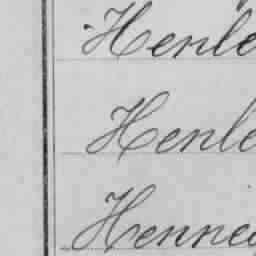 Henle
Henle
Henne